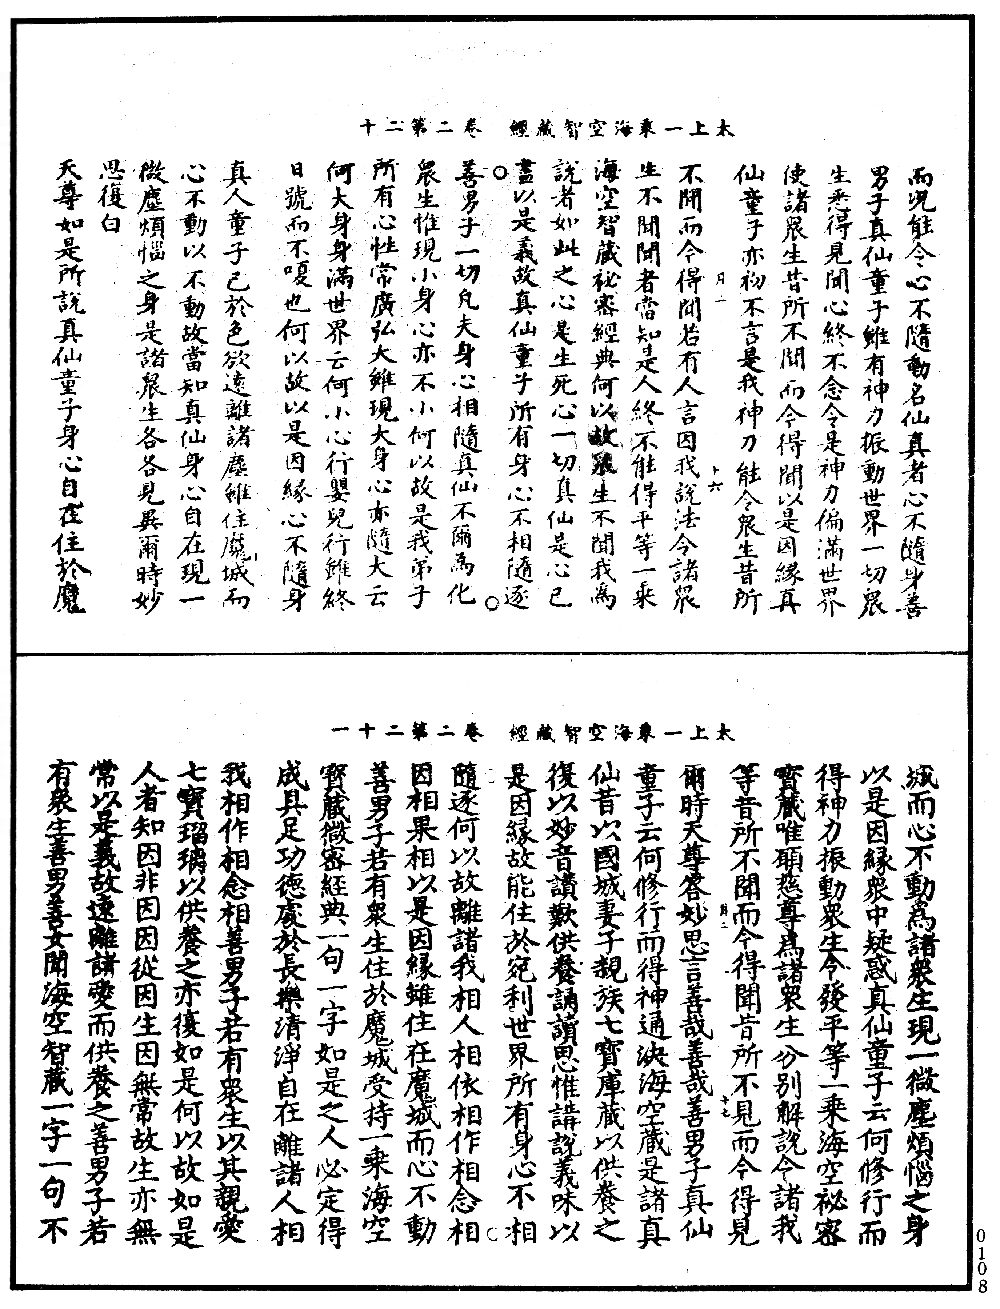 太上一乘海空智藏經 卷二第二十
而況能令心不隨動名仙真者心不隨身善
男子真仙童子雖有神力振動世界一切眾
生悉得見聞心終不念令是神力徧滿世界
使諸眾生昔所不聞而今得聞以是因緣真
仙童子亦初不言是我神力能令眾生昔所
不聞而今得聞若有人言因我說法令諸眾
生不聞聞者當知是人終不能得平等一乘
海空智藏祕密經典何以故眾生不聞我為
說者如此之心是生死心一切真仙是心已
盡以是義故真仙童子所有身心不相隨逐
善男子一切凡夫身心相隨真仙不爾為化
眾生惟現小身心亦不小何以故是我弟子
所有心性常廣弘大雖現大身心亦隨大云
何大身身滿世界云何小心行嬰兒行雖終
日號而不嗄也何以故以是因緣心不隨身
真人童子已於色欲遠離諸塵雖住魔城而
心不動以不動故當知真仙身心自在現一
微塵煩惱之身是諸眾生各各見異爾時妙
思復白
天尊如是所說真仙童子身心自在住於魔
月一
十六
太上一乘海空智藏經 卷二第二十一
城而心不動為諸眾生現一微塵煩惱之身
以是因緣眾中疑惑真仙童子云何修行而
得神力振動眾生令發平等一乘海空祕密
寶藏唯願慈尊為諸眾生分別解說令諸我
等昔所不聞而今得聞昔所不見而今得見
爾時天尊答妙思言善哉善哉善男子真仙
童子云何修行而得神通決海空藏是諸真
仙昔以國城妻子親族七寶庫藏以供養之
復以妙音讚歎供養誦讀思惟講說義味以
是因緣故能住於宛利世界所有身心不相
隨逐何以故離諸我相人相依相作相念相
因相果相以是因緣雖住在魔城而心不動
善男子若有眾生住於魔城受持一乘海空
寶藏微密經典一句一字如是之人必定得
成具足功德處於長樂清淨自在離諸人相
我相作相念相善男子若有眾生以其親愛
七寶瑠璃以供養之亦復如是何以故如是
人者知因非因因從因生因無常故生亦無
常以是義故遠離諸愛而供養之善男子若
有眾生善男善女聞海空智藏一字一句不
月二
十七
0108